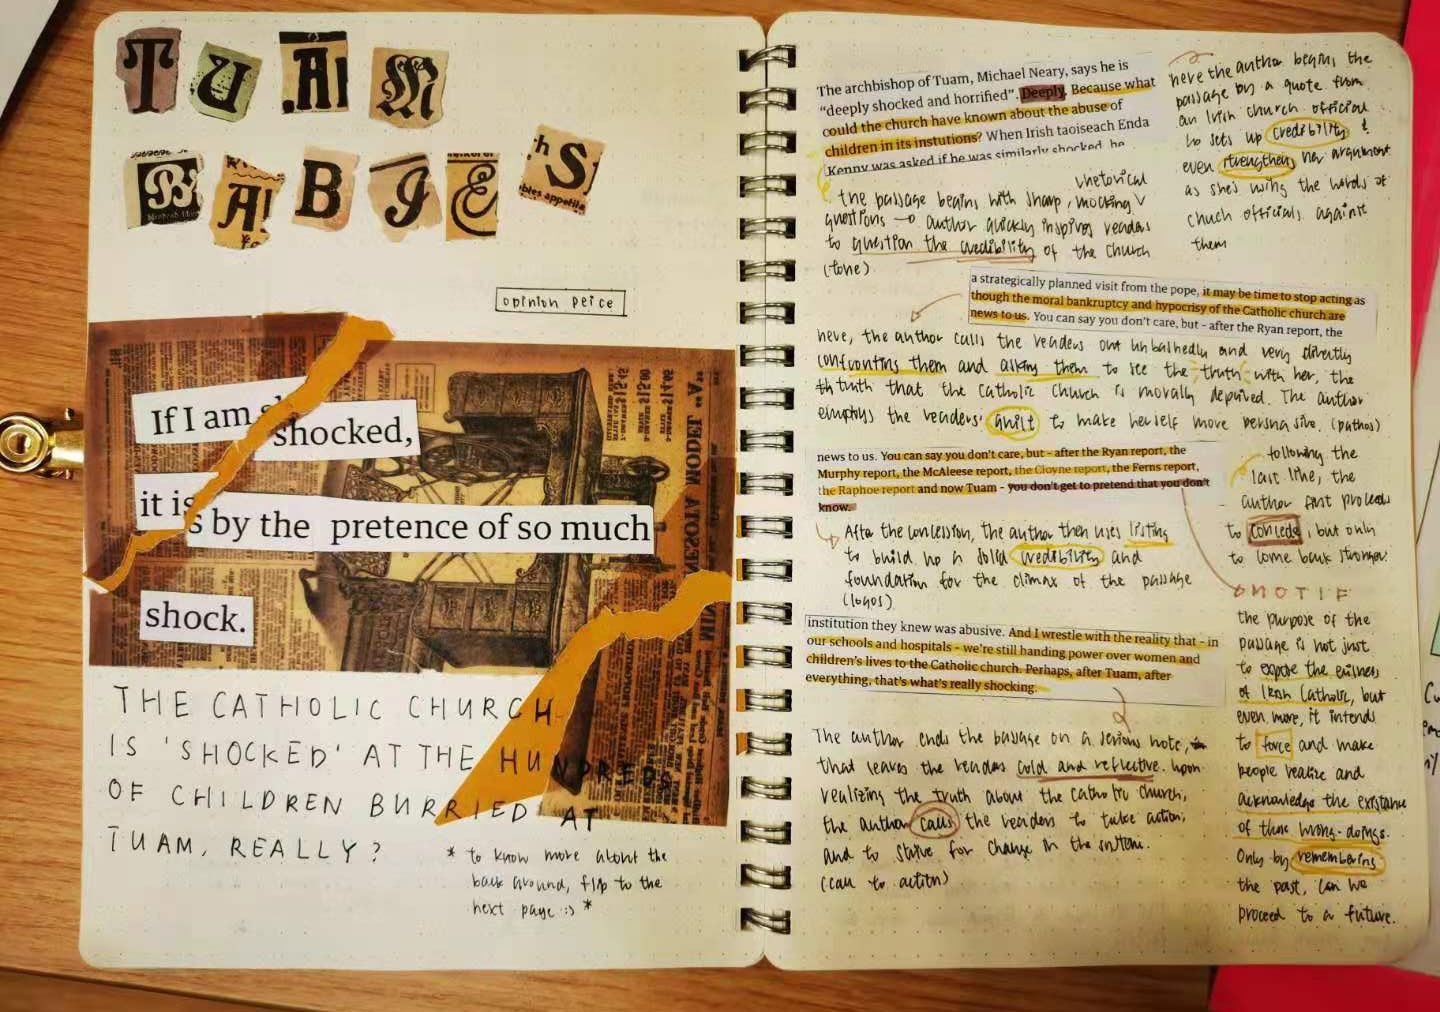 TUAM
BABIES
opinion peice
If I am shocked,
it is by the pretence of so much
shock.
THE CATHOLIC CHURCH
IS 'SHOCKED' AT THE HUNDREDS
OF CHILDREN BURRIED AT
TUAM, REALLY?
* to know more about the
back ground, flip to the
next page :) *
The archbishop of Tuam, Michael Neary, says he is
"deeply shocked and horrified". Deeply. Because what
could the church have known about the abuse of
children in its instutions? When Irish taoiseach Enda
Kenny was asked if he was similarly shocked, he
here the author begins the
passage by a quote from
an Irish church official
to sets up credibility &
even strengthen her argument
as she's using the words of
church officials against
them
the passage begins with sharp, mocking rhetorical
questions → author quickly inspires readers
to question the credibility of the church
(tone)
a strategically planned visit from the pope, it may be time to stop acting as
though the moral bankruptcy and hypocrisy of the Catholic church are
news to us. You can say you don't care, but - after the Ryan report, the
here, the author calls the readers out unbashedly and very directly
confronting them and asking them to see the truth with her, the
truth that the Catholic Church is morally depived. The author
employs the readers' guilt to make herself more persuasive. (pathos)
news to us. You can say you don't care, but - after the Ryan report, the
Murphy report, the McAleese report, the Cloyne report, the Ferns report,
the Raphoe report and now Tuam - you don't get to pretend that you don't
know.
following the
last line, the
author first proceeds
to concede, but only
to come back stronger.
After the concession, the author then uses listing
to build up a solid credibility and
foundation for the climax of the passage
(logos)
MOTIF
the purpose of the
passage is not just
to expose the evilness
of Irish Catholic, but
even more, it intends
to force and make
people realize and
acknowledge the existance
of these wrong-doings.
Only by remembering
the past, can we
proceed to a future.
institution they knew was abusive. And I wrestle with the reality that - in
our schools and hospitals - we're still handing power over women and
children's lives to the Catholic church. Perhaps, after Tuam, after
everything, that's what's really shocking.
The author ends the passage on a serious note,
that leaves the readers cold and reflective. Upon
realizing the truth about the Catholic church,
the author calls the readers to take action,
and to strive for change in the system.
(call to action)